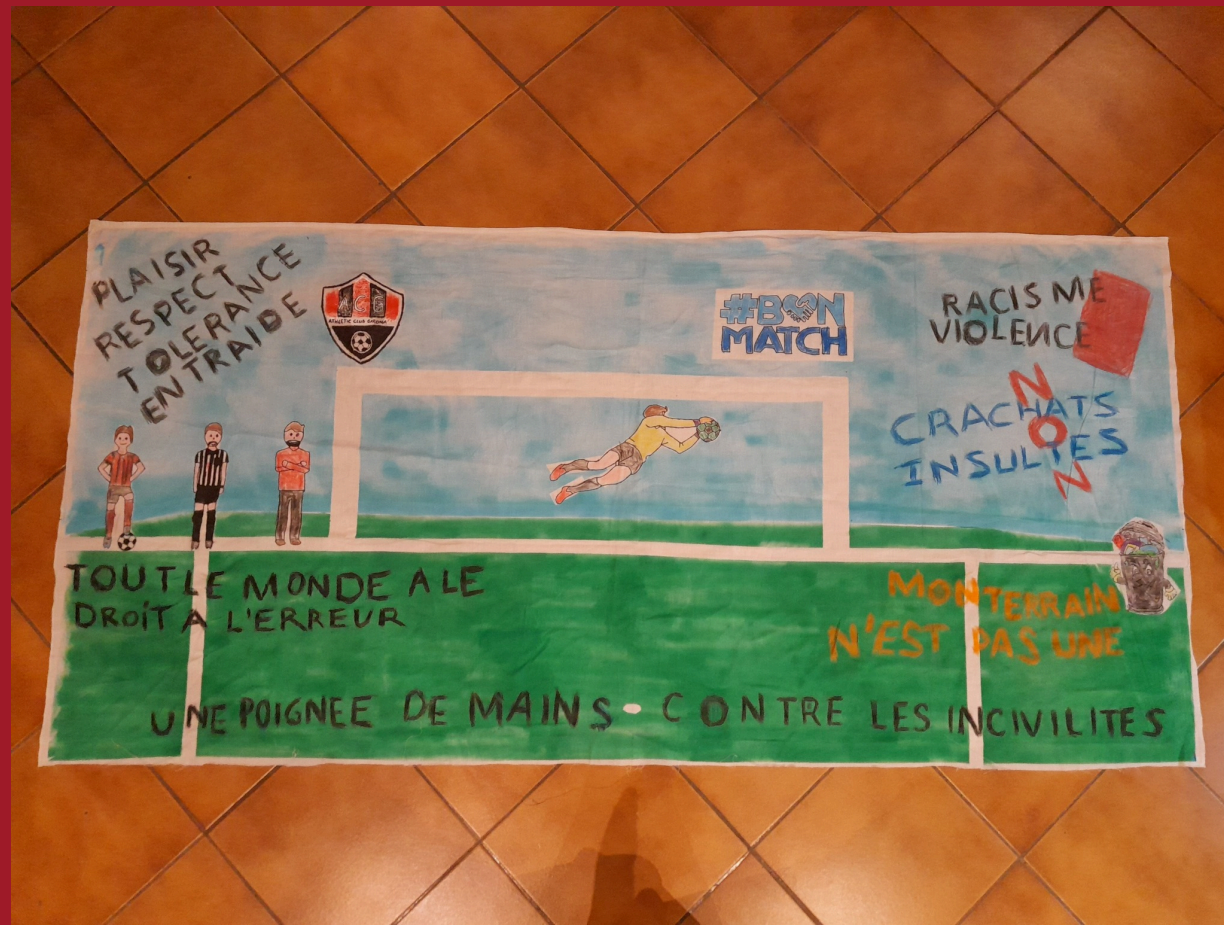 PLAISIR
RESPECT
TOLERANCE
ENTRAIDE
ACE
#BON
MATCH
RACISME
VIOLENCE
NON
CRACHATS
INSULTES
TOUT LE MONDE A LE
DROIT A L'ERREUR
MON TERRAIN
N'EST PAS UNE
UNE POIGNEE DE MAINS · CONTRE LES INCIVILITES